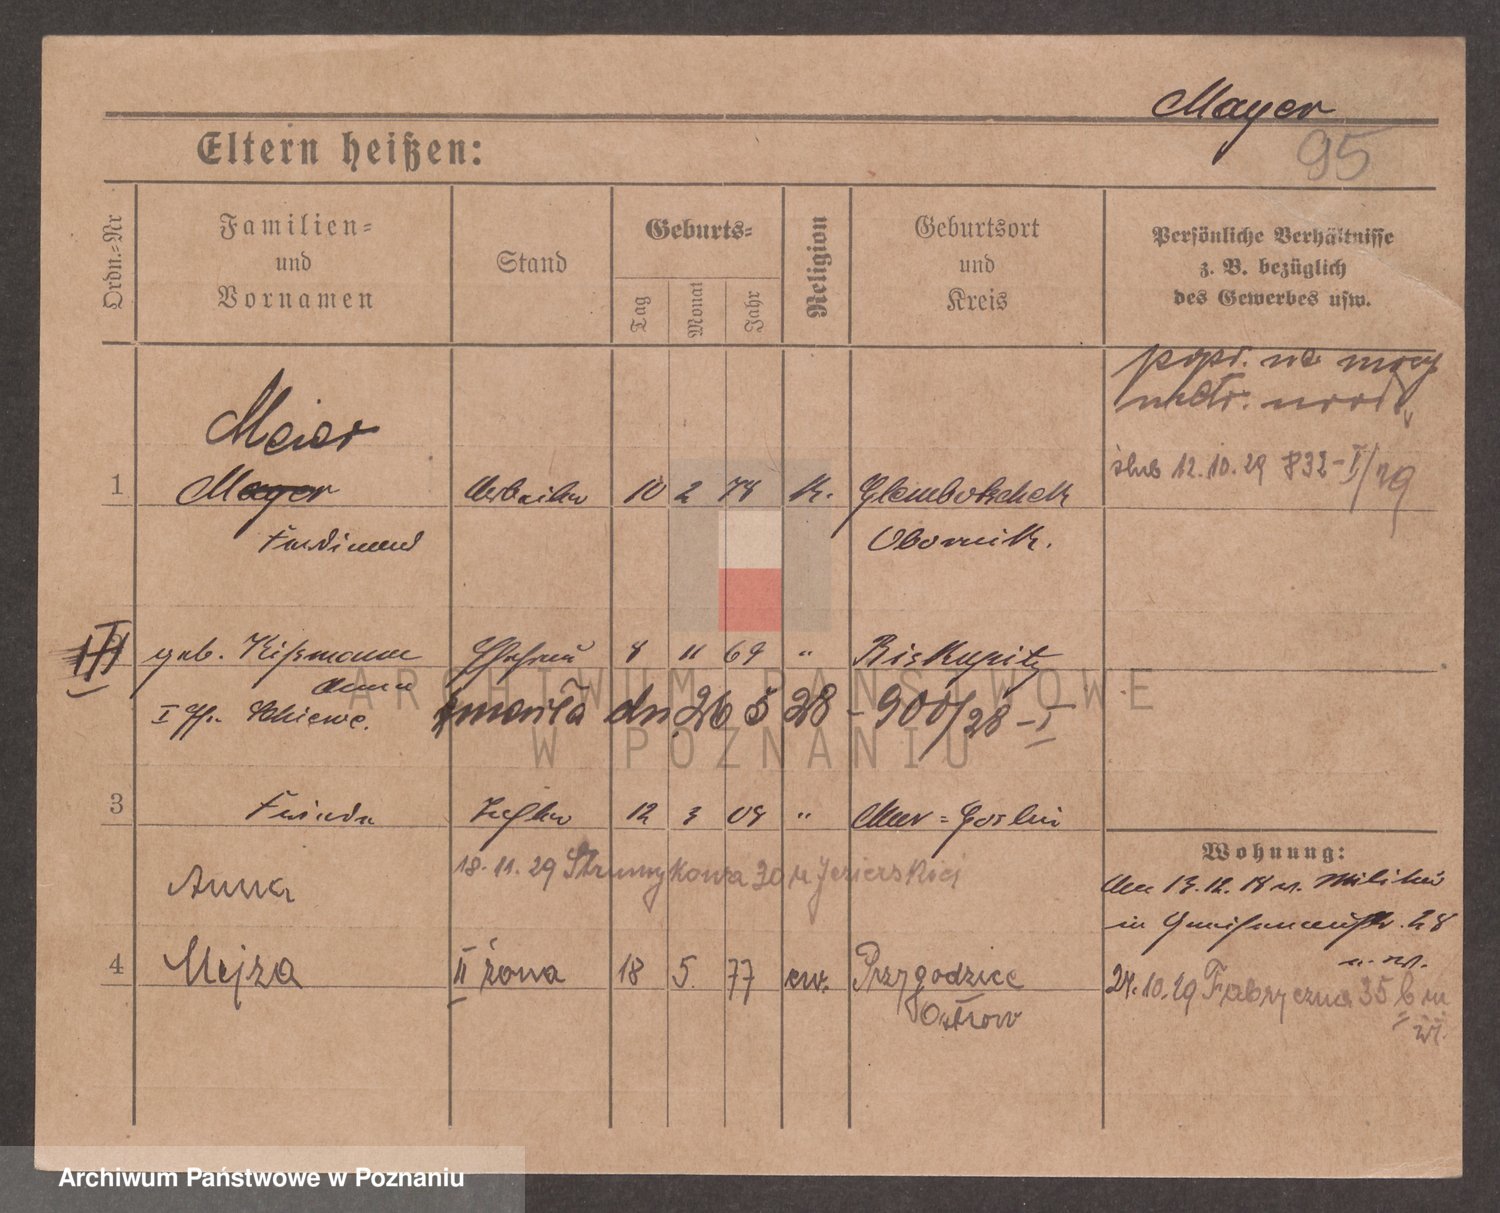 Mayer
95
Eltern heißen:
Ordn.-Nr
Familien-
und
Vornamen
Stand
Geburts-
Tag
Monat
Jahr
Religion
Geburtsort
und
Kreis
Persönliche Verhältnisse
z. B. bezüglich
des Gewerbes usw.
popr. na mocy
metr.
ślub 12.10.29 832-I/29
Meier
1 Mayer Arbeiter 10 2 78 K. Glembotschek
Ferdinand Obornik.
III geb. Kißmann Ehefrau 8 11 69 " Biskupitz
Anna
I Schiewe. zmarła dn. 26 5 28 - 900/28 - I
ARCHIWUM PAŃSTWOWE
W POZNANIU
3 Frieda Tochter 12 3 09 " Mur=Goslin
Wohnung:
18.11.29 Strumykowa 30 u Jezierskiej
Anna
13.12.18 v. Militär
in Gneisenaustr. 28
4 Mejza II żona 18 5. 77 ew. Przygodzice
Ostrow
24.10.29 Fabryczna 35 b m
wł.
Archiwum Państwowe w Poznaniu